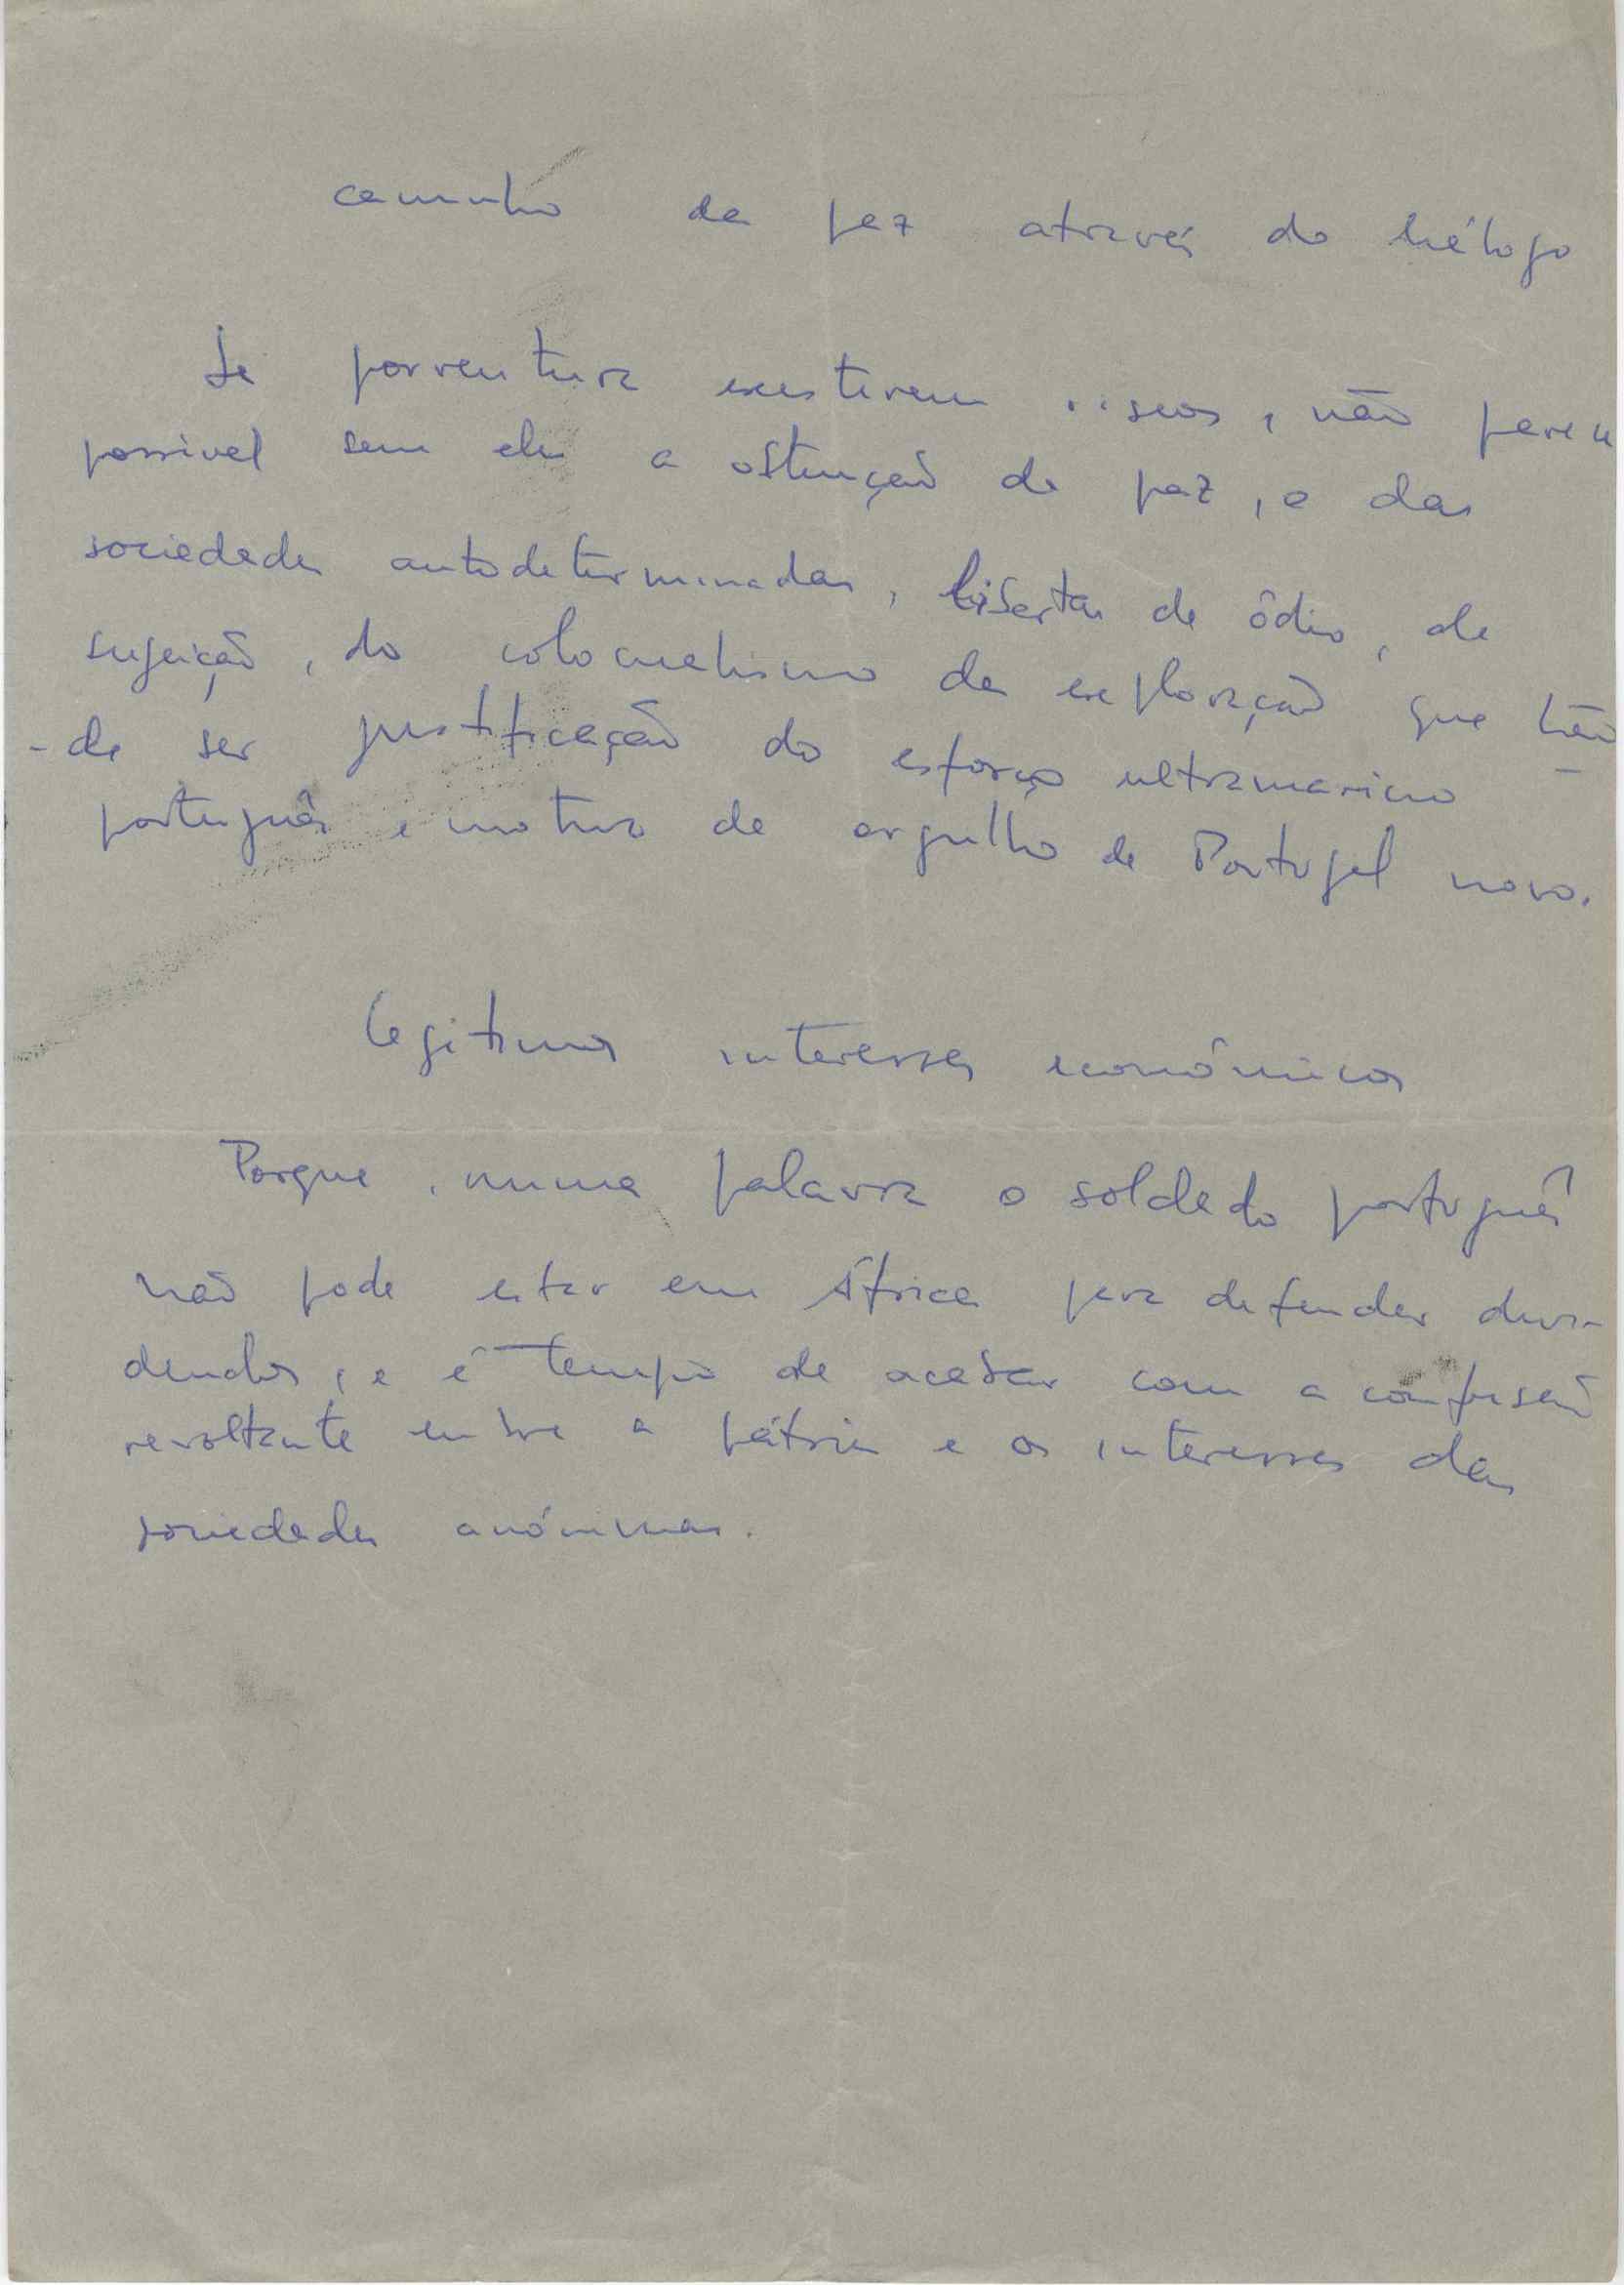 caminho da paz através do diálogo
Se porventura existirem riscos, não parece
possivel sem eles a obtenção da paz, e das
sociedades autodeterminadas, libertas de ódio, de
sujeição, do colonialismo da exploração que hão
-de ser justificação do esforço ultramarino
português e motivo de orgulho de Portugal novo.
Legitimos interesses económicos
Porque, numa palavra o soldado português
não pode estar em África para defender divi-
dendos, e é tempo de acabar com a confusão
revoltante entre a pátria e os interesses das
sociedades anónimas.